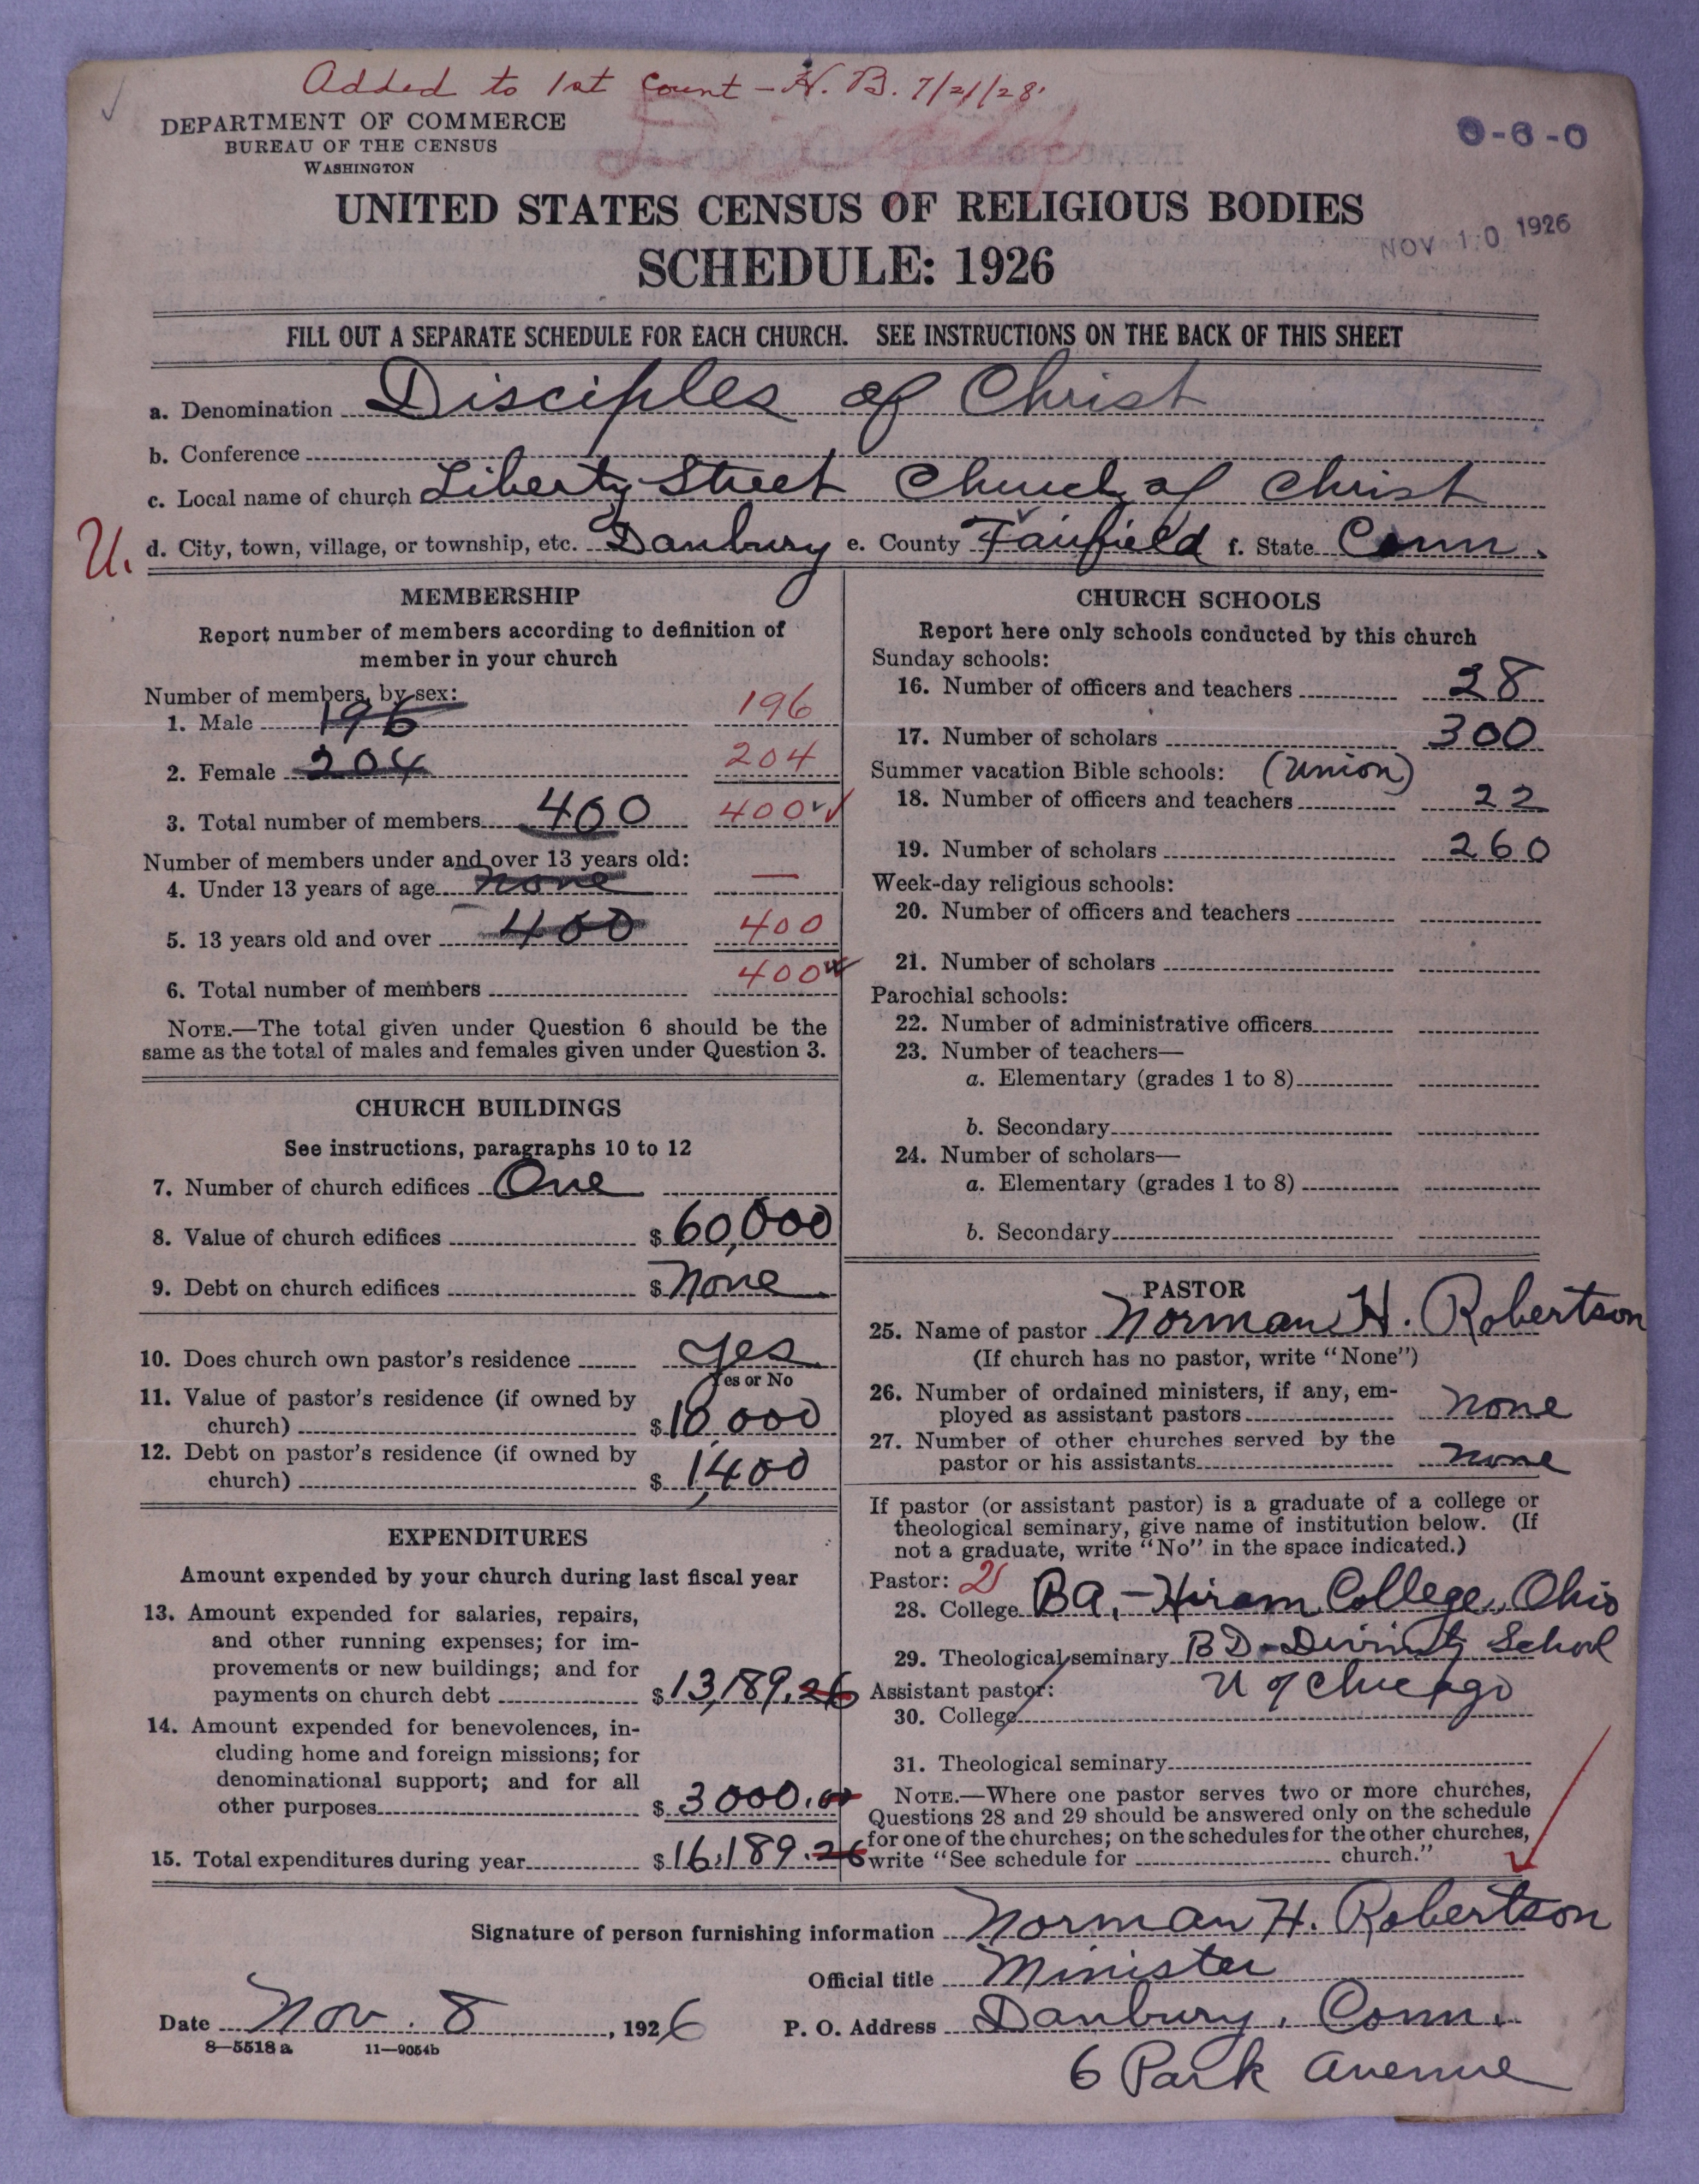 Added to 1st Count - H. B. 7/21/28.
DEPARTMENT OF COMMERCE
BUREAU OF THE CENSUS
WASHINGTON
0-6-0
UNITED STATES CENSUS OF RELIGIOUS BODIES
NOV 10 1926
SCHEDULE: 1926
FILL OUT A SEPARATE SCHEDULE FOR EACH CHURCH. SEE INSTRUCTIONS ON THE BACK OF THIS SHEET
a. Denomination Disciples of Christ
b. Conference
c. Local name of church Liberty Street Church of Christ
U.
d. City, town, village, or township, etc. Danbury e. County Fairfield f. State Conn.
MEMBERSHIP
Report number of members according to definition of
member in your church
Number of members, by sex:
1. Male 196 196
2. Female 204 204
3. Total number of members 400 400
Number of members under and over 13 years old:
4. Under 13 years of age none —
5. 13 years old and over 400 400
6. Total number of members 400
NOTE.—The total given under Question 6 should be the
same as the total of males and females given under Question 3.
CHURCH BUILDINGS
See instructions, paragraphs 10 to 12
7. Number of church edifices One
8. Value of church edifices $ 60,000
9. Debt on church edifices $ None
10. Does church own pastor's residence Yes
Yes or No
11. Value of pastor's residence (if owned by
church) $ 10,000
12. Debt on pastor's residence (if owned by
church) $ 1,400
EXPENDITURES
Amount expended by your church during last fiscal year
13. Amount expended for salaries, repairs,
and other running expenses; for im-
provements or new buildings; and for
payments on church debt $ 13,189.26
14. Amount expended for benevolences, in-
cluding home and foreign missions; for
denominational support; and for all
other purposes $ 3000.00
15. Total expenditures during year $ 16,189.26
CHURCH SCHOOLS
Report here only schools conducted by this church
Sunday schools:
16. Number of officers and teachers 28
17. Number of scholars 300
Summer vacation Bible schools: (Union)
18. Number of officers and teachers 22
19. Number of scholars 260
Week-day religious schools:
20. Number of officers and teachers
21. Number of scholars
Parochial schools:
22. Number of administrative officers
23. Number of teachers—
a. Elementary (grades 1 to 8)
b. Secondary
24. Number of scholars—
a. Elementary (grades 1 to 8)
b. Secondary
PASTOR
25. Name of pastor Norman H. Robertson
(If church has no pastor, write "None")
26. Number of ordained ministers, if any, em-
ployed as assistant pastors None
27. Number of other churches served by the
pastor or his assistants None
If pastor (or assistant pastor) is a graduate of a college or
theological seminary, give name of institution below. (If
not a graduate, write "No" in the space indicated.)
Pastor: 2
28. College BA, - Hiram College, Ohio
29. Theological seminary BD - Divinity School
U of Chicago
Assistant pastor:
30. College
31. Theological seminary
NOTE.—Where one pastor serves two or more churches,
Questions 28 and 29 should be answered only on the schedule
for one of the churches; on the schedules for the other churches,
write "See schedule for church."
Signature of person furnishing information Norman H. Robertson
Official title Minister
Date Nov. 8, 1926
P. O. Address Danbury, Conn.
6 Park Avenue
8—5518 a 11—9054b